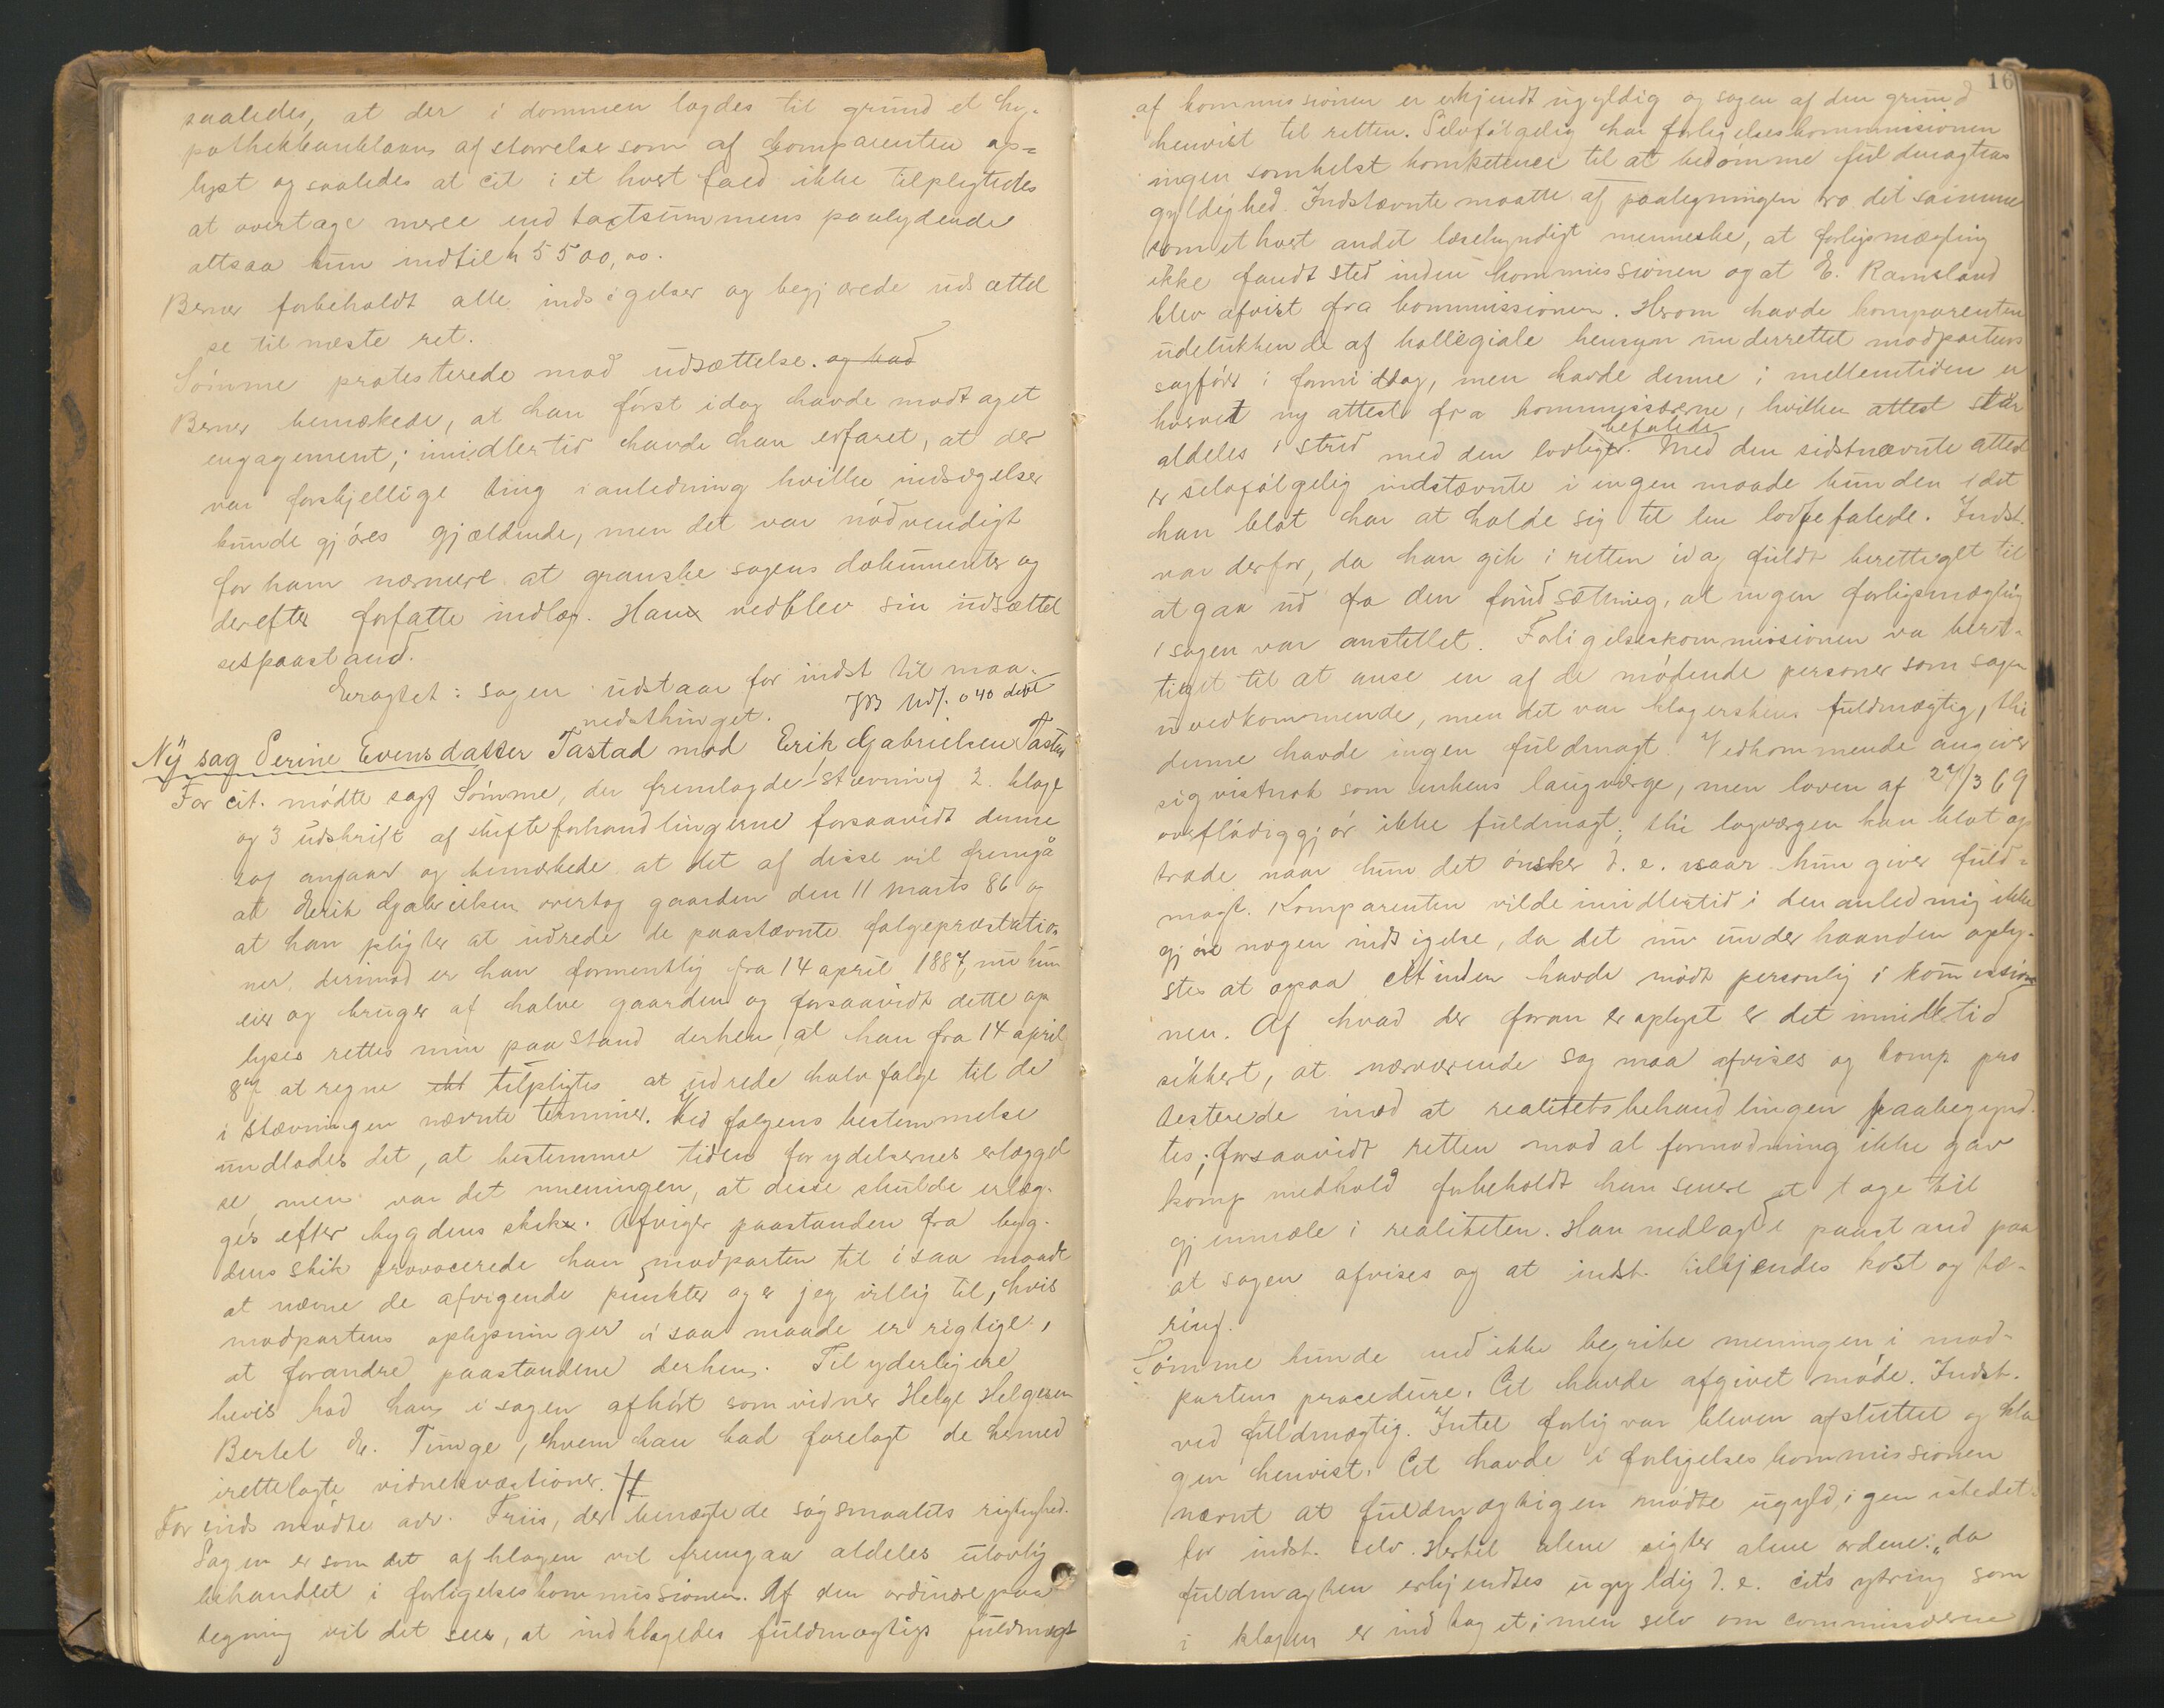 saaledes, at der i dommen lagdes til grund et hy-
pothekbanklaans af størrelse som af Comparenten op=
lyst og saaledes at cit i et hvert fald ikke tilpligtedes
at overtage mere end taxtsummens paalydende
altsaa kun indtil kr 5500,00.
Berner forbeholdt alle indsigelser og begjærede udsættel
se til næste ret.
Sømme protesterede mod udsættelse. og bad
Berner bemærkede, at han først idag havde modtaget
engagement; imidlertid havde han erfaret, at der
var forskjellige ting i anledning hvilke indsigelser
kunde gjøres gjældende, men det var nødvendigt
for ham nærmere at granske sagens dokumenter og
derefter forfatte indlæg. Han vedblev sin udsættel
sespaastand.
Eragtet: sagen udstaar for indst til maa-
nedsthinget.
Ny sag Serine Evensdatter Tastad mod Erik Gabrielsen Tastad
For cit. mødte sagf Sømme, der fremlagde stævning 2. klage
og 3 udskrift af skifteforhandlingerne forsaavidt denne
sag angaar og bemærkede at det af disse vil fremgå
at Erik Gabrielsen overtog gaarden den 11 marts 86 og
at han pligter at udrede de paastævnte følgepræstatio-
ner, derimod er han formentlig fra 14 april 1887, nu kun
eier og bruger af halve gaarden og forsaavidt dette op
lyses rettes min paastand derhen, at han fra 14 april
87 at regne tilpligtes at udrede halv følge til de
i stævningen nævnte terminer. Ved følgens bestemmelse
undlodes det, at bestemme tiden for ydelsernes erlæggel
se, men var det meningen, at disse skulde erlæg-
ges efter bygdens skik. Afviger paastanden fra byg-
dens skik provocerede han modparten til i saa maade
at nævne de afvigende punkter og er jeg villig til, hvis
modpartens oplysninger i saa maade er rigtige,
at forandre paastandene derhen. Til yderligere
bevis bad han i sagen afhørt som vidner Helge Helgesen
Bertel Tunge, hvem han bad forelagt de hermed
irettelagte vidnekvæstioner.
For inds mødte adv. Friis, der benægtede søgsmaalets rigtighed.
Sagen er som det af klagen vil fremgaa aldeles ulovlig
behandlet i forligelseskommissionen. Af den ordinære paa
tegning vil det sees, at indklagedes fuldmægtigs fuldmagt
16
af kommissionen er erkjendt ugyldig og sagen af den grund
henvist til retten. Selvfølgelig har forligelseskommmisionen
ingen somhelst kompetence til at bedømme fuldmagtens
gyldighed. Indstævnte maatte af paategningen tro det samme
som et hvert andet læsekyndigt menneske, at forligsmægling
ikke fandt sted inden kommissionen og at E. Ramsland
blev afvist fra kommissionen. Herom havde komparenten
udelukkende af kollegiale hensyn underrettet modpartens
sagfører i formiddag, men havde denne i mellemtiden er
hvervet ny attest fra kommissærerne, hvilken attest står
aldeles i strid med den lovlige befalede. Med den sidstnævnte attest
er selvfølgelig indstævnte i ingen maade bunden idet
han blot har at holde sig til den lovbefalede. Indst.
var derfor, da han gik i retten idag fuldt berettiget til
at gaa ud fra den forudsætning, at ingen forligsmægling
i sagen var anstillet. Forligelseskommissionen var beret-
tiget til at anse en af de mødende personer som sagen
uvedkommende, men det var klagerskens fuldmægtig, thi
denne havde ingen fuldmagt. Vedkommende angiver
sig vistnok som enkens laugværge, men loven af 24/3 69
overflødiggjør ikke fuldmagt; thi lagværgen kan blot op
træde naar hun det ønsker d. e. naar hun giver fuld-
magt. Komparenten vilde imidlertid i den anledning ikke
gjøre nogen indsigelse, da det nu under haanden oply-
stes at ogsaa citinden havde mødt personlig i kommission
nen. Af hvad der foran er oplyst er det imidlertid
sikkert, at nærværende sag maa afvises og komp pro
testerede imod at realitetsbehandlingen paabegynd-
tes; forsaavidt retten mod al formodning ikke gav
komp medhold forbeholdt han senere at tage til
gjenmæle i realiteten. Han nedlagde paastand paa
at sagen afvises og at indst. tilkjendes kost og tæ-
ring.
Sømme kunde ikke begribe meningen i mod-
partens procedure. Cit havde afgivet møde. Indst.
ved fuldmægtig. Intet forlig var bleven afsluttet og kla
gen henvist. Cit havde i forligelseskommissionen
nævnt at fuldmægtigen mødte ugyldigen istedet-
for indst. selv. Hertil alene sigter alene ordene: "da
fuldmagten erkjendtes ugyldig d. e. cits ytring som
i klagen er indtaget; men selv om commissærerne